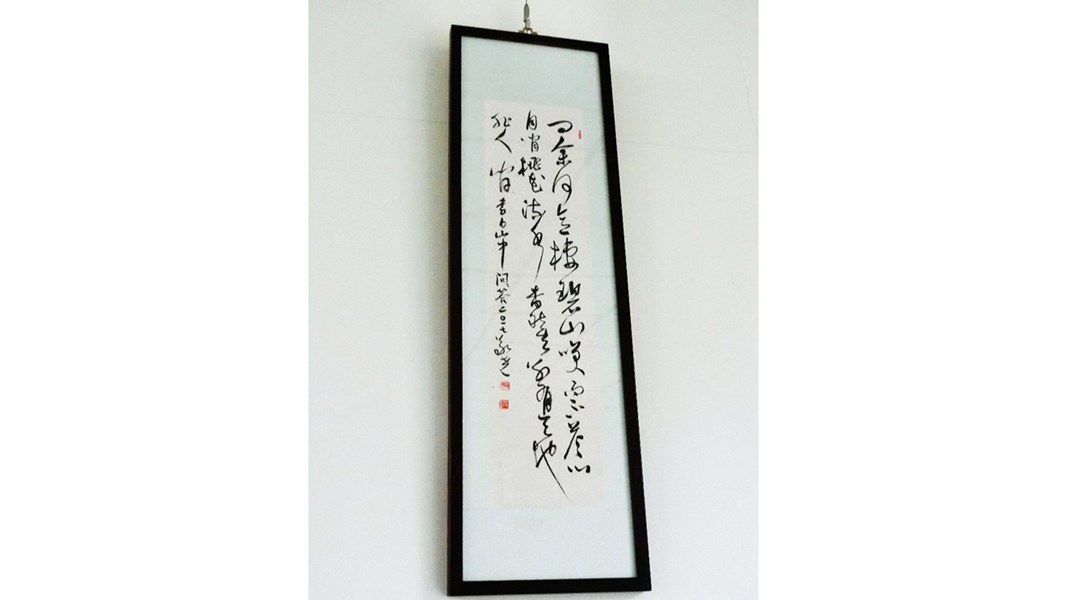 问余何意棲碧山咲而不答心
自闲桃花流水杳然去别有天地
非人间 李白山中问答二〇一七